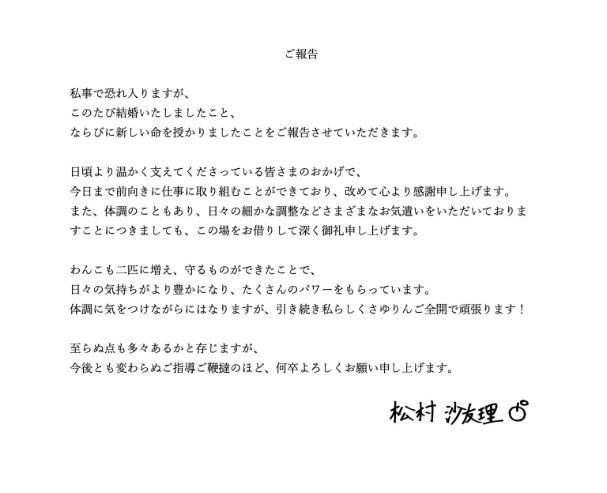 ご報告
私事で恐れ入りますが、
このたび結婚いたしましたこと、
ならびに新しい命を授かりましたことをご報告させていただきます。
日頃より温かく支えてくださっている皆さまのおかげで、
今日まで前向きに仕事に取り組むことができており、改めて心より感謝申し上げます。
また、体調のこともあり、日々の細かな調整などさまざまなお気遣いをいただいておりま
すことにつきましても、この場をお借りして深く御礼申し上げます。
わんこも二匹に増え、守るものができたことで、
日々の気持ちがより豊かになり、たくさんのパワーをもらっています。
体調に気をつけながらにはなりますが、引き続き私らしくさゆりんご全開で頑張ります！
至らぬ点も多々あるかと存じますが、
今後とも変わらぬご指導ご鞭撻のほど、何卒よろしくお願い申し上げます。
松村 沙友理